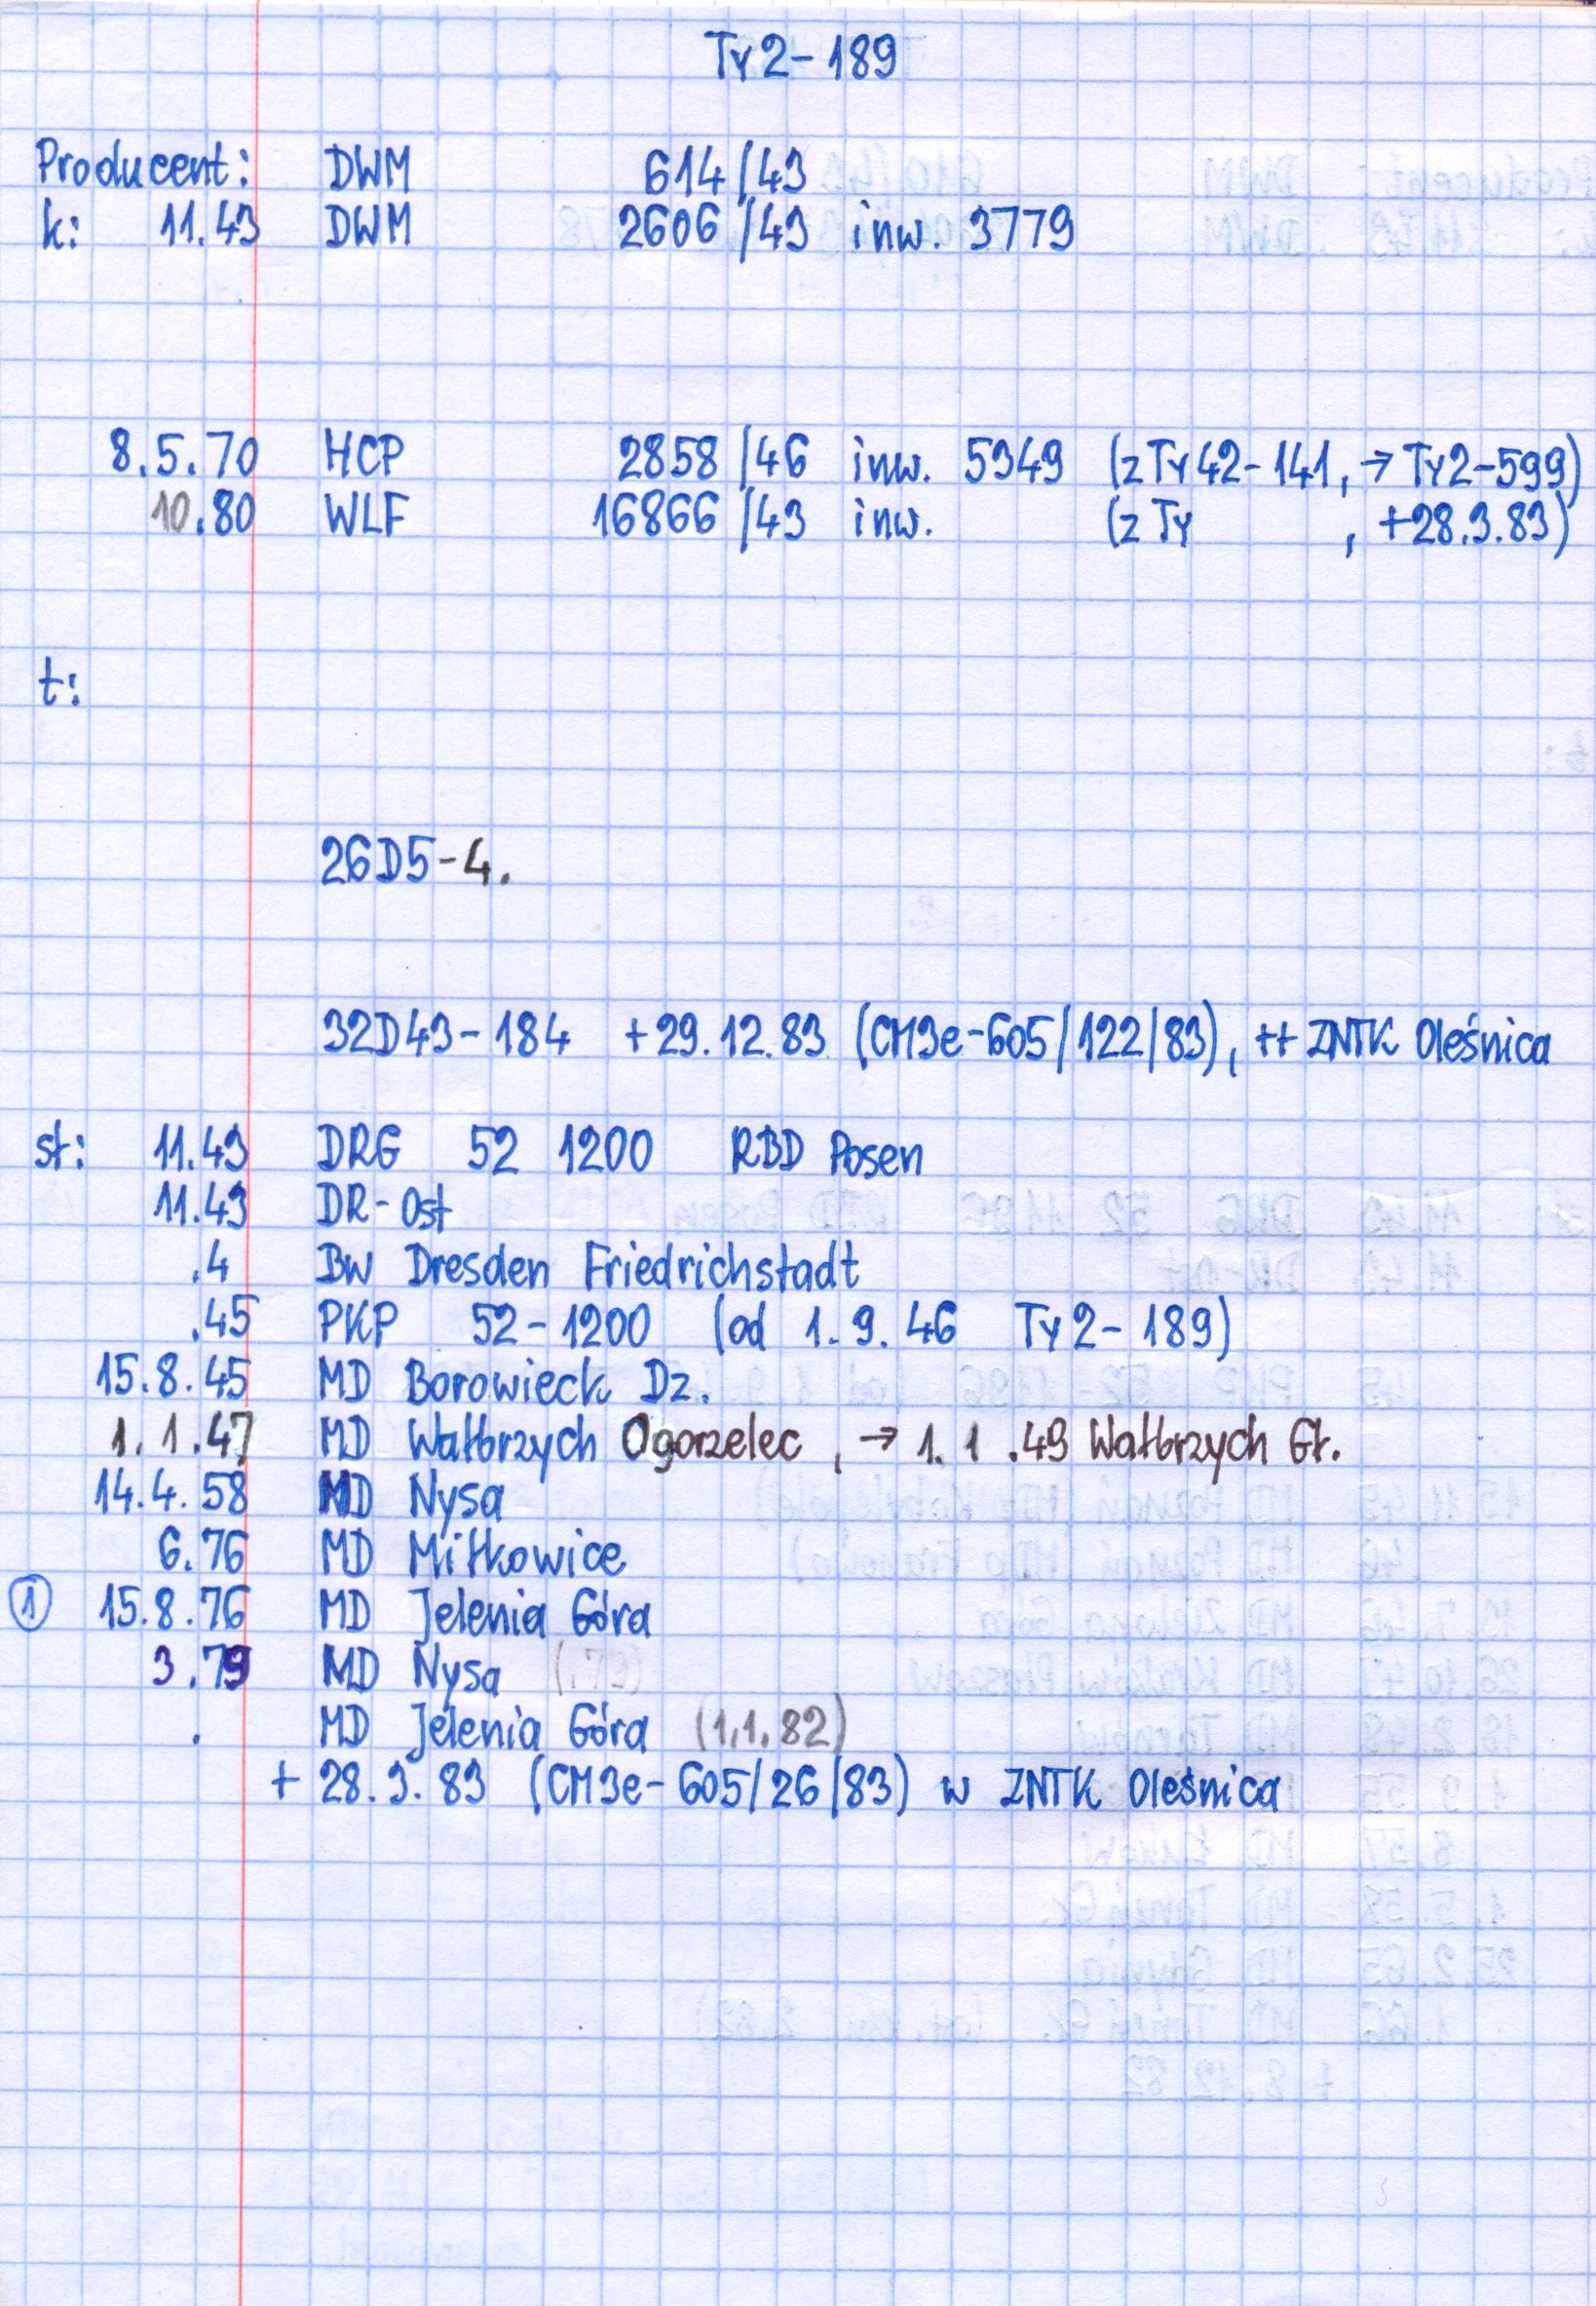 Ty2-189
Producent: DWM 614/43
k: 11.43 DWM 2606/43 inw. 3779
8.5.70 HCP 2858/46 inw. 5349 (z Ty42-141, → Ty2-599)
10.80 WLF 16866/43 inw. (z Ty , +28.3.83)
t:
26D5-4.
32D43-184 +29.12.83 (CM3e-605/122/83), ++ ZNTK Oleśnica
st: 11.43 DRG 52 1200 RBD Posen
11.43 DR-Ost
.4 Bw Dresden Friedrichstadt
.45 PKP 52-1200 (od 1.9.46 Ty2-189)
15.8.45 MD Borowieck Dz.
1.1.47 MD Wałbrzych Ogorzelec, → 1.1.49 Wałbrzych Gł.
14.4.58 MD Nysa
6.76 MD Miłkowice
① 15.8.76 MD Jelenia Góra
3.79 MD Nysa
. MD Jelenia Góra (1.1.82)
+ 28.3.83 (CM3e-605/26/83) w ZNTK Oleśnica